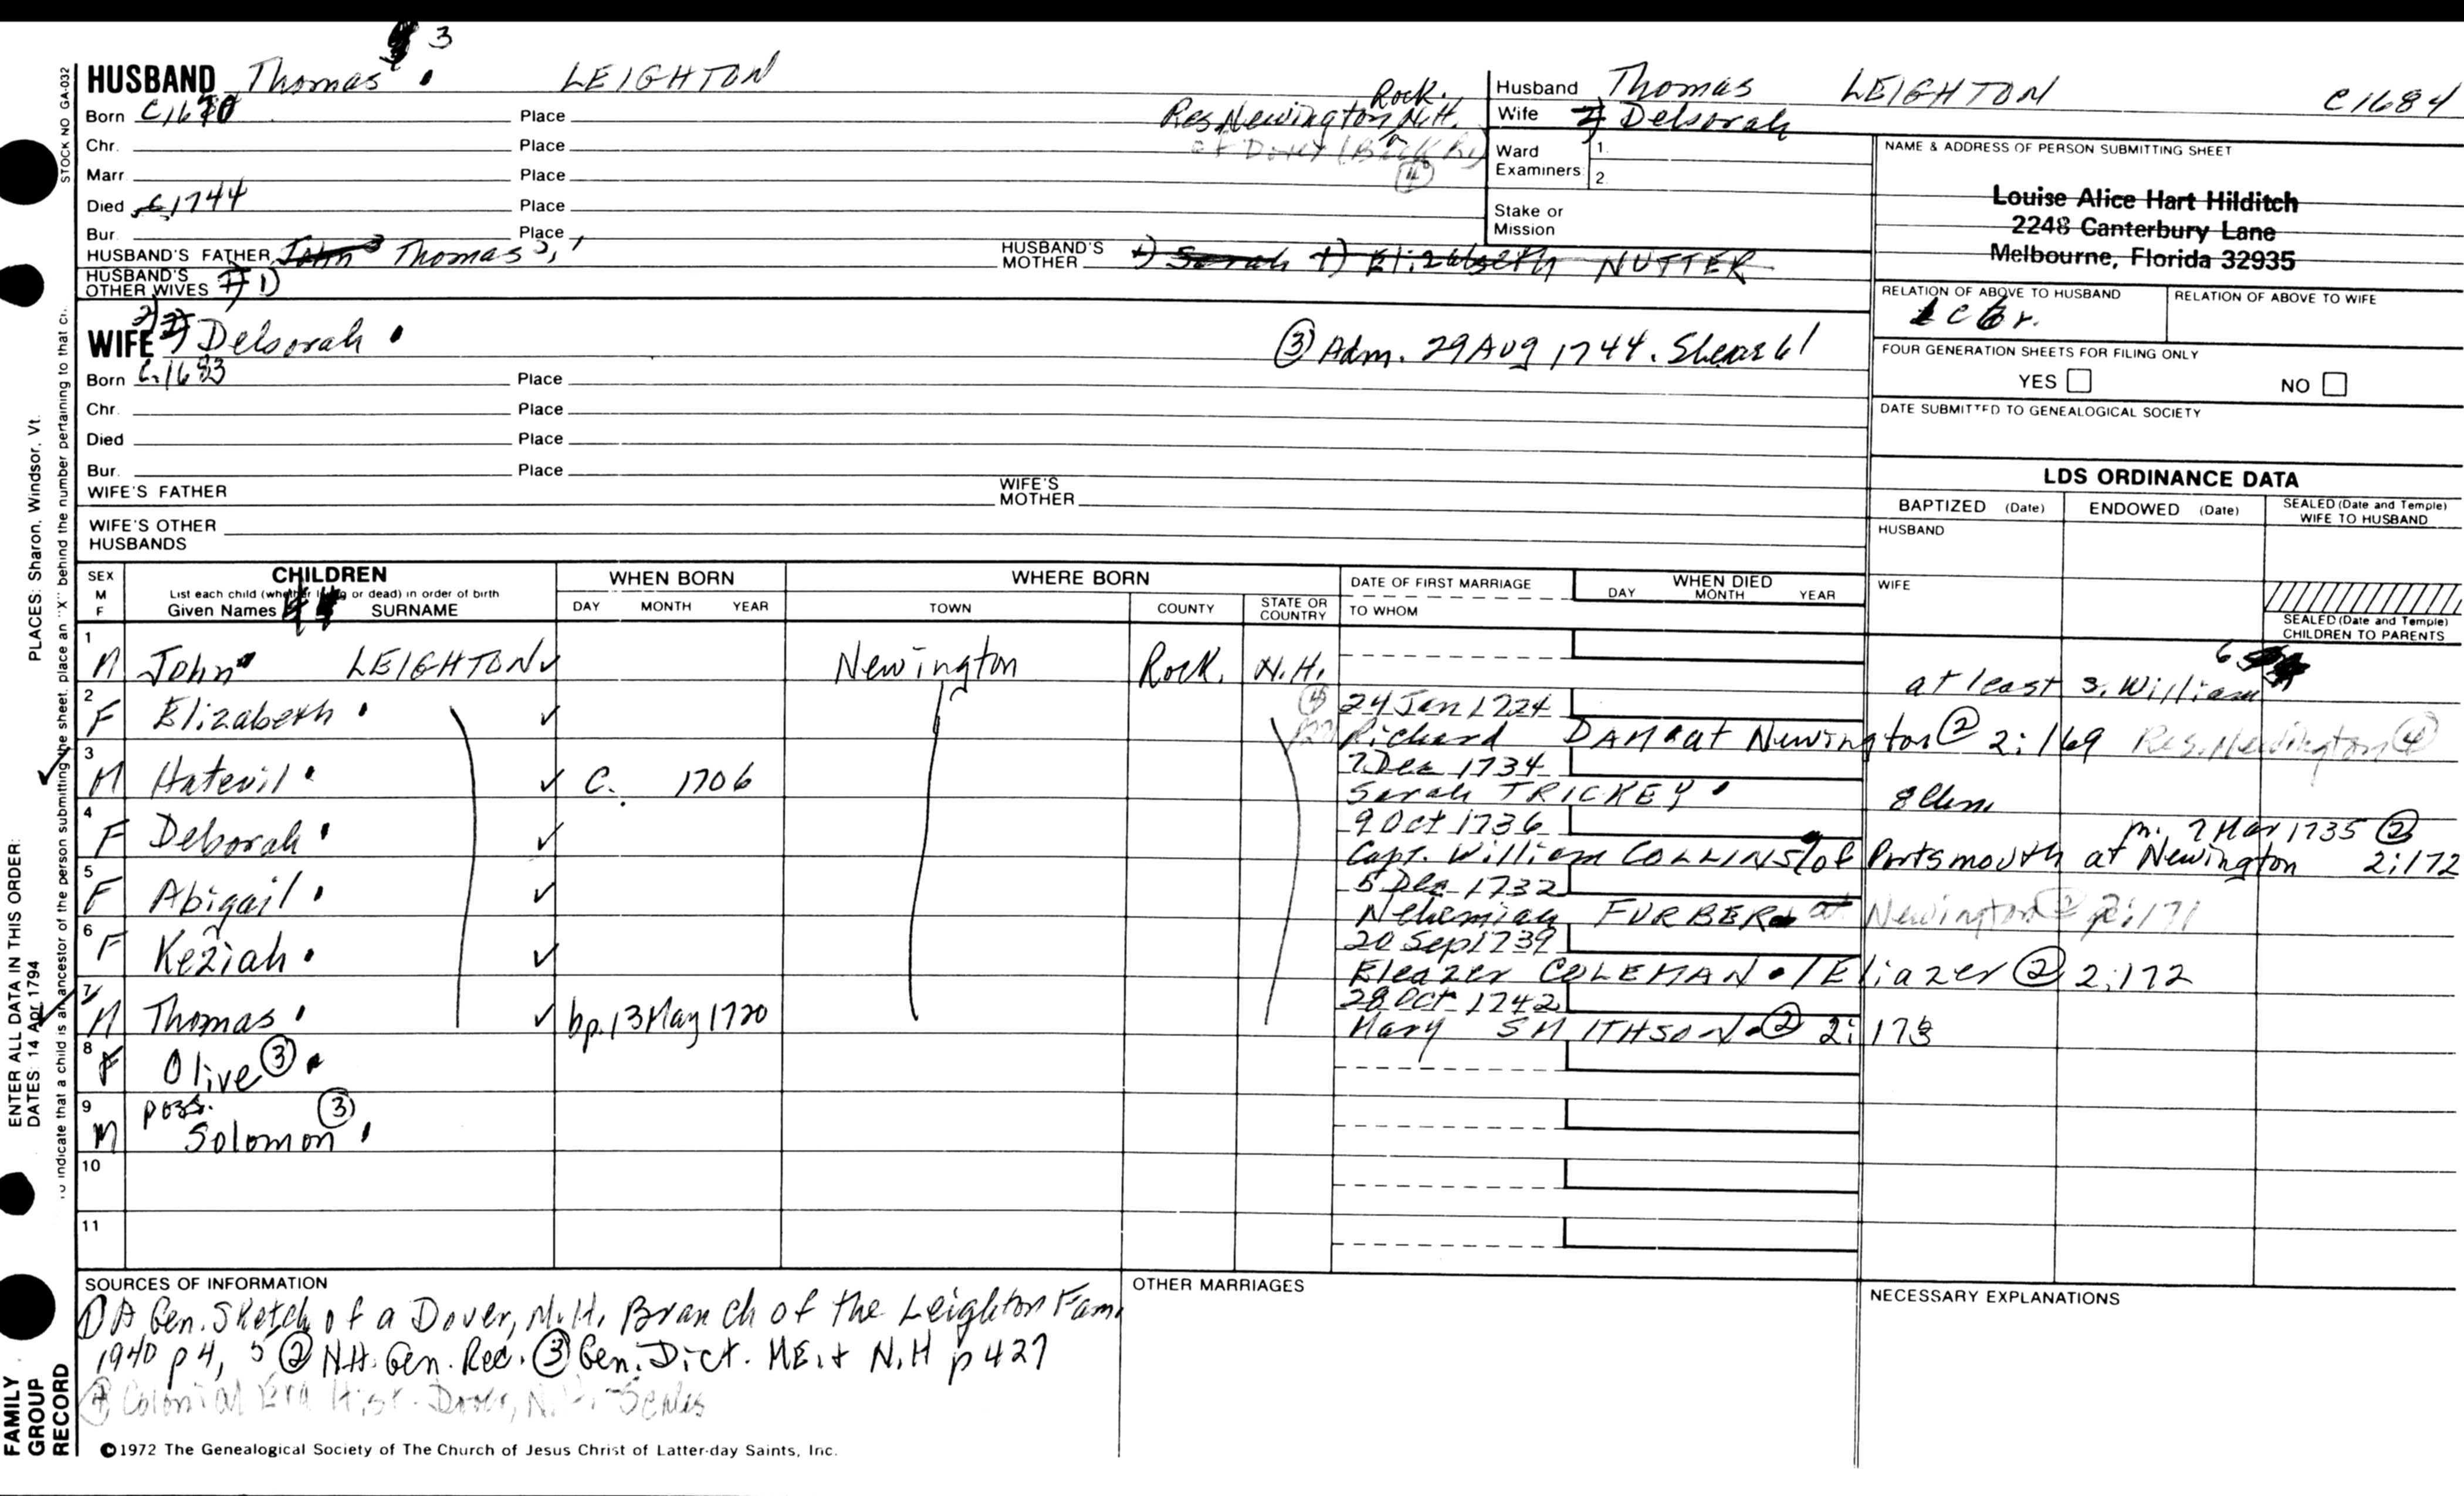 3
HUSBAND Thomas LEIGHTON
Born C1670 Place
Res Newington, Rock. N.H.
Chr. Place
of Dover
Marr Place
(4)
Died c1744 Place
Bur. Place
HUSBAND'S FATHER John Thomas
HUSBAND'S MOTHER 1) Sarah 1) Elizabeth NUTTER
HUSBAND'S OTHER WIVES 1)
Husband Thomas LEIGHTON C1684
Wife 2) Deborah
Ward Examiners 1.
2.
Stake or Mission
NAME & ADDRESS OF PERSON SUBMITTING SHEET
Louise Alice Hart Hilditch
2248 Canterbury Lane
Melbourne, Florida 32935
RELATION OF ABOVE TO HUSBAND RELATION OF ABOVE TO WIFE
FOUR GENERATION SHEETS FOR FILING ONLY
YES NO
DATE SUBMITTED TO GENEALOGICAL SOCIETY
WIFE 2) Deborah
③ Adm. 29 Aug 1744.
Born C.1683 Place
Chr. Place
Died Place
Bur. Place
WIFE'S FATHER WIFE'S MOTHER
WIFE'S OTHER HUSBANDS
LDS ORDINANCE DATA
BAPTIZED (Date) ENDOWED (Date) SEALED (Date and Temple) WIFE TO HUSBAND
HUSBAND
WIFE
SEALED (Date and Temple) CHILDREN TO PARENTS
SEX M F
CHILDREN
List each child (whether living or dead) in order of birth
Given Names SURNAME
WHEN BORN
DAY MONTH YEAR
WHERE BORN
TOWN COUNTY STATE OR COUNTRY
DATE OF FIRST MARRIAGE
TO WHOM
WHEN DIED
DAY MONTH YEAR
1 M John LEIGHTON ✓ Newington Rock. N.H. at least 3. William 6
2 F Elizabeth ✓ (4) 24 Jan 1724
Richard DAM at Newington ② 2:169 Res. Newington ④
3 M Hatevil ✓ C. 1706 7 Dec 1734
Sarah TRICKEY
4 F Deborah ✓ 9 Oct 1736 m. 7 Mar 1735 ②
Capt. William COLLINS / of Portsmouth at Newington 2:172
5 F Abigail ✓ 5 Dec 1732
Nehemiah FURBER at Newington ② 2:171
6 F Keziah ✓ 20 Sep 1739
Eleazer COLEMAN / Eliazer ② 2:172
7 M Thomas ✓ bp. 13 May 1720 28 Oct 1742
Mary SMITHSON ② 2:173
8 F Olive ③
9 M poss. Solomon ③
10
11
SOURCES OF INFORMATION
① A Gen. Sketch of a Dover, N.H. Branch of the Leighton Fam.
1940 p 4, 5 ② N.H. Gen. Rec. ③ Gen. Dict. ME. & N.H p 427
④ Colonial Era Hist. Dover, N.H. Scales
OTHER MARRIAGES
NECESSARY EXPLANATIONS
©1972 The Genealogical Society of The Church of Jesus Christ of Latter-day Saints, Inc.
STOCK NO GA-032
To indicate that a child is an ancestor of the person submitting the sheet, place an "X" behind the number pertaining to that
ENTER ALL DATA IN THIS ORDER:
DATES: 14 Apr 1794
PLACES: Sharon, Windsor, Vt.
FAMILY
GROUP
RECORD